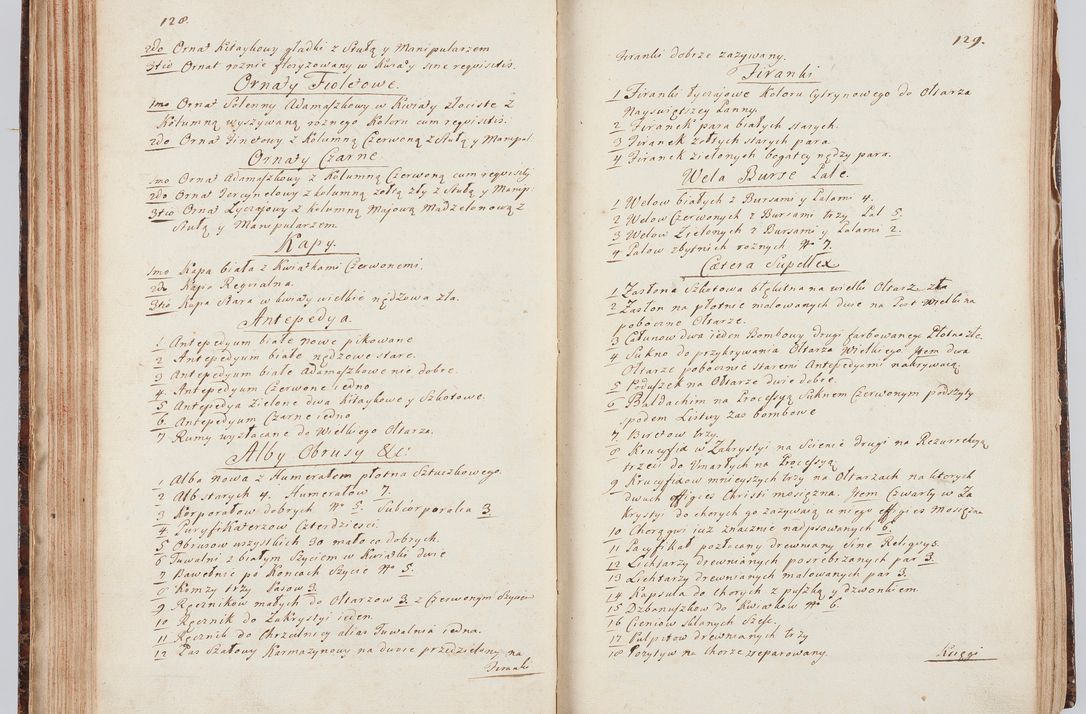 128.
2do Ornat Kitaykowy gładki z Stułą y Manipularzem
3tio Ornat roznie floryzowany w Kwiaty sine requisitis.
Ornaty Fioletowe.
1mo Ornat Solenny Adamaszkowy w Kwiaty złociste z
Kolumną wyszywaną rożnego Koloru cum requisitis.
2do Ornat Ginetowy z Kolumną Czerwoną z Stułą y Manipul.
Ornaty Czarne
1mo Ornat Adamaszkowy z Kolumną Czerwoną cum requisitis
2do Ornat Tercynelowy z kolumną zołtą zły z Stułą y Manip:
3tio Ornat Łyczajowy z kolumną Majową Madzelonową z
Stułą y Manipularzem.
Kapy.
1mo Kapa biała z Kwiatkami Czerwonemi.
2do Kapa Requialna.
3tio Kapa Stara w kwiaty wielkie nędzowa zła.
Antepedya
1 Antepedyum białe nowe pikowane
2 Antepedyum białe nędzowe stare.
3 Antepedyum białe Adamaszkowe nie dobre.
4. Antepedyum Czerwone iedno
5 Antepedya Zielone dwa Kitaykowe y Szkotowe.
6. Antepedyum Czarne iedno
7 Ramy wyzłacane do Wielkiego Ołtarza.
Alby Obrusy &c:
1 Alba nowa z Humerałem płotna Sztuczkowego.
2 Alb starych 4. Humerałow 7.
3 Korporałow dobrych No 5. Subcorporalia 3
4 Puryfikaterzow Czterdziesci.
5 Obrusow wszystkich 30 mało co dobrych.
6 Tuwalni z białym Szyciem w Kwiatki dwie
7 Bawełnic po Koncach Szycie No 5.
8 Komzy trzy Pasow 3.
9 Ręcznikow małych do Ołtarzow 3. z Czerwonym Szyciem
10 Ręcznik do Zakrystyi ieden.
11 Ręcznik do Chrzcielnicy alias Tuwalnia iedna.
12 Pas Szatowy Karmazynowy na dwoie przedzielony na
Firanki
129.
Firanki dobrze zazywany.
Firanki
1 Firanki Łyczajowe Koloru Cytrynowego do Ołtarza
Nayswiętszey Panny.
2 Firanek para białych starych.
3 Firanek zołtych starych para.
4 Firanek zielonych bogatey nędzy para.
Wela Burse Pale.
1 Welow białych z Bursami y Palami 4.
2 Welow Czerwonych z Bursami trzy Pal 5.
3 Welow Zielonych z Bursami y Palami 2.
4 Palow zbytnich roznych No 7.
Cætera Supellex
1 Zasłona Szkotowa błękitna na wielki Ołtarz zła
2 Zasłon na płotnie malowanych dwie na Post Wielki na
poboczne Ołtarze.
3 Całunow dwa ieden Bombowy drugi farbowanego Płotna złe.
4 Sukno do przykrywania Ołtarza Wielkiego. Item dwa
Ołtarze poboczne staremi Antepedyami nakrywaią
5 Poduszek na Ołtarze dwie dobre.
6 Baldachim na Processyą Suknem Czerwonym podszyty
spodem Listwy zas bombowe
7. Biretow trzy.
8 Krucyfix w Zakrystyi na Scienie drugi na Rezurrekcyą
trzeci do Umarłych na Processyą
9 Krucyfixow mnieyszych trzy na Ołtarzach na ktorych
dwuch effigies Christi mosięzna. Item Czwarty w Za
krystyi do chorych go zazywaią u niego effigies Mosięzna
10 Chorągwi iuz znacznie nadpsowanych 6.
11 Pacyfikał pozłacany drewniany Sine Reliquys.
12 Lichtarzy drewnianych posrebrzanych par 3.
13 Lichtarzy drewnianych malowanych par 3.
14 Kapsuła do Chorych z puszką y dzwonkiem.
15 Dzbanuszkow do Kwiatkow No 6.
16 Cieniow sklanych Szesc.
17 Pulpitow drewnianych trzy
18 Pozytyw na Chorze zreparowany.
Księgi